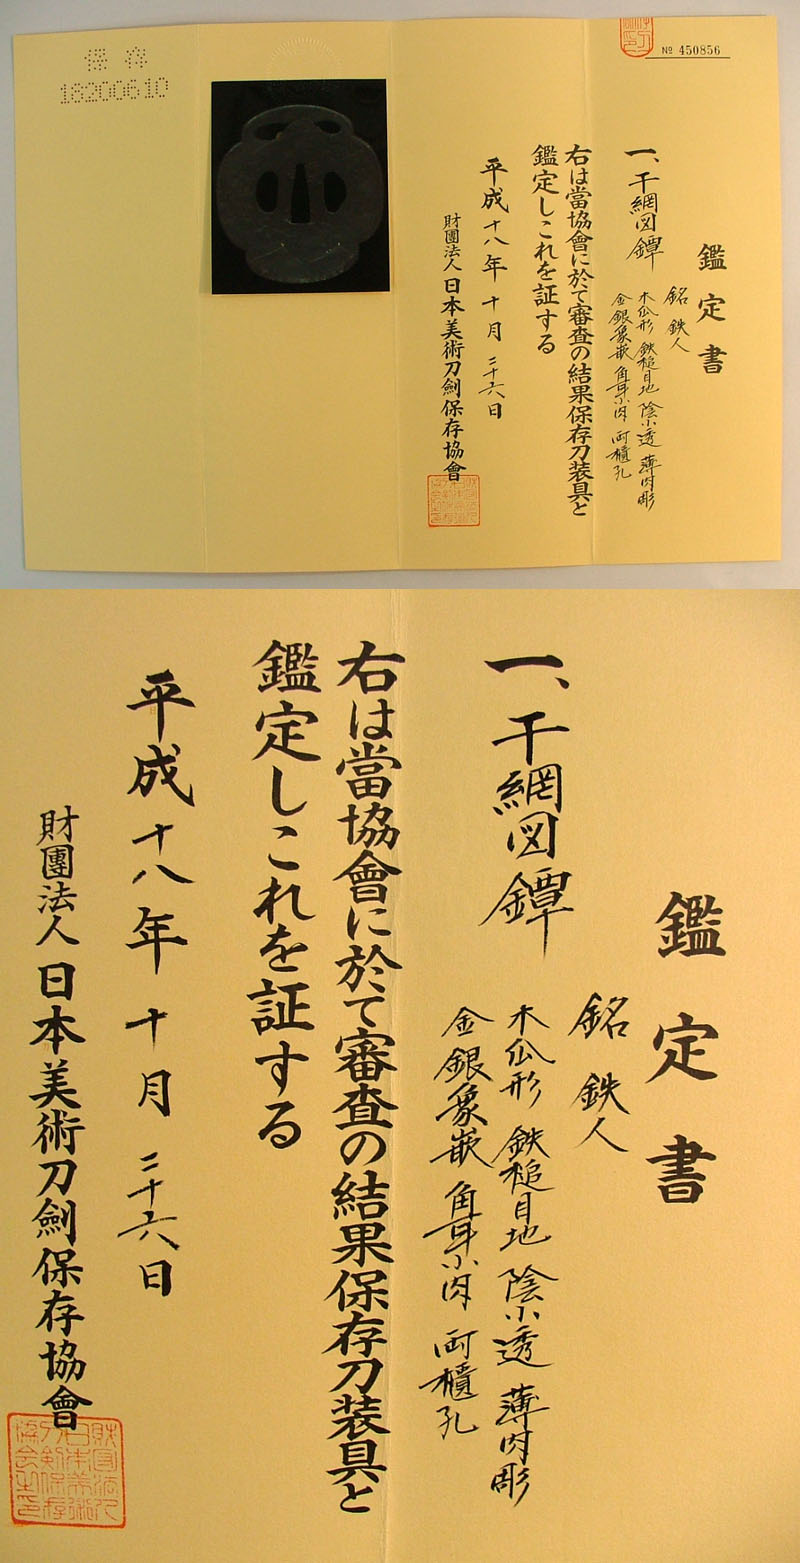 保存
18200610
№ 450856
鑑定書
一、干網図鐔
銘 鉄人
木瓜形 鉄槌目地 陰小透 薄肉彫
金銀象嵌 角耳小肉 両櫃孔
右は當協會に於て審査の結果保存刀装具と
鑑定しこれを証する
平成十八年十月二十六日
財團法人日本美術刀劍保存協會
鑑定書
一、干網図鐔
銘 鉄人
木瓜形 鉄槌目地 陰小透 薄肉彫
金銀象嵌 角耳小肉 両櫃孔
右は當協會に於て審査の結果保存刀装具と
鑑定しこれを証する
平成十八年十月二十六日
財團法人日本美術刀劍保存協會